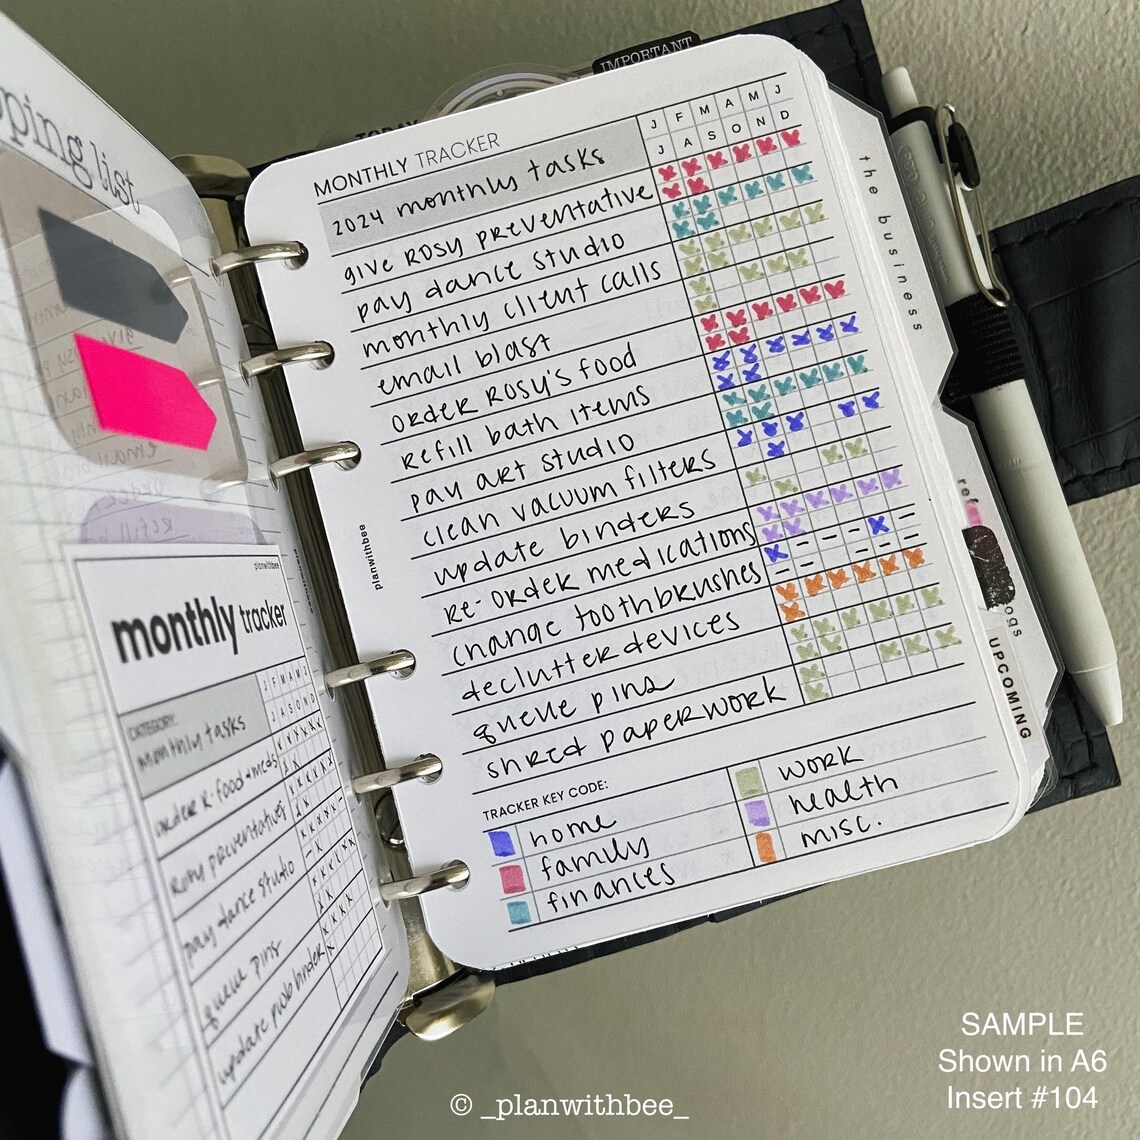 pping list
IMPORTANT
TODAY
MONTHLY TRACKER
J F M A M J
J A S O N D
2024 monthly tasks
give Rosy preventative
pay dance studio
monthly client calls
email blast
order Rosy's food
refill bath items
pay art studio
clean vacuum filters
update binders
re-order medications
change toothbrushes
declutter devices
queue pins
shred paperwork
TRACKER KEY CODE:
home
family
finances
work
health
misc.
planwithbee
the business
ref
ogs
UPCOMING
planwithbee
monthly tracker
J F M A M J
J A S O N D
CATEGORY:
monthly tasks
order R. food + meds
Rosy preventative
pay dance studio
queue pins
update pwb binder
SAMPLE
Shown in A6
Insert #104
© _planwithbee_